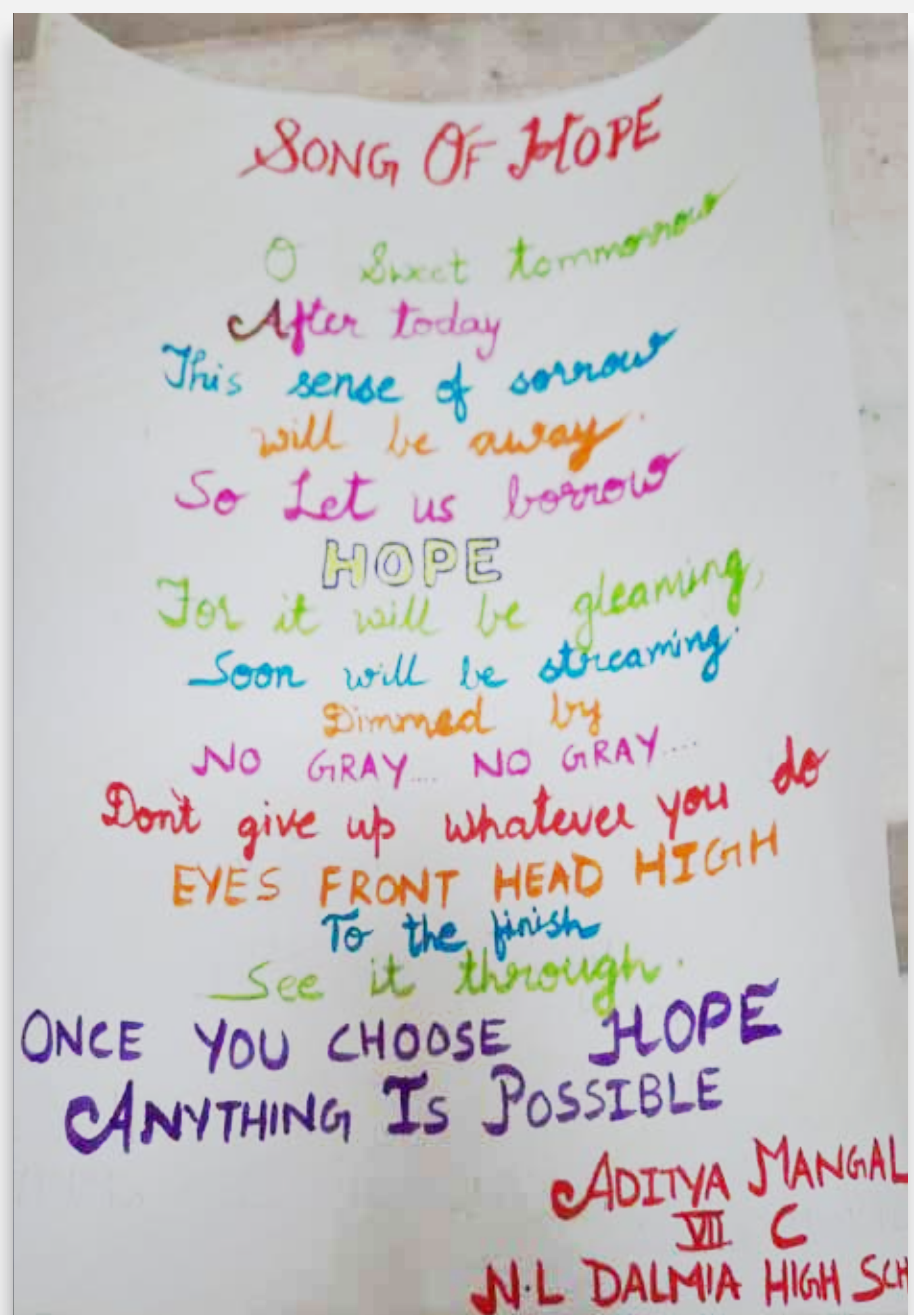 SONG OF HOPE
O Sweet tommorrow
After today
This sense of sorrow
will be away.
So Let us borrow
HOPE
For it will be gleaming,
Soon will be streaming.
Dimmed by
NO GRAY... NO GRAY....
Don't give up whatever you do
EYES FRONT HEAD HIGH
To the finish
See it through.
ONCE YOU CHOOSE HOPE
ANYTHING IS POSSIBLE
ADITYA MANGAL
VII C
N.L DALMIA HIGH SCH